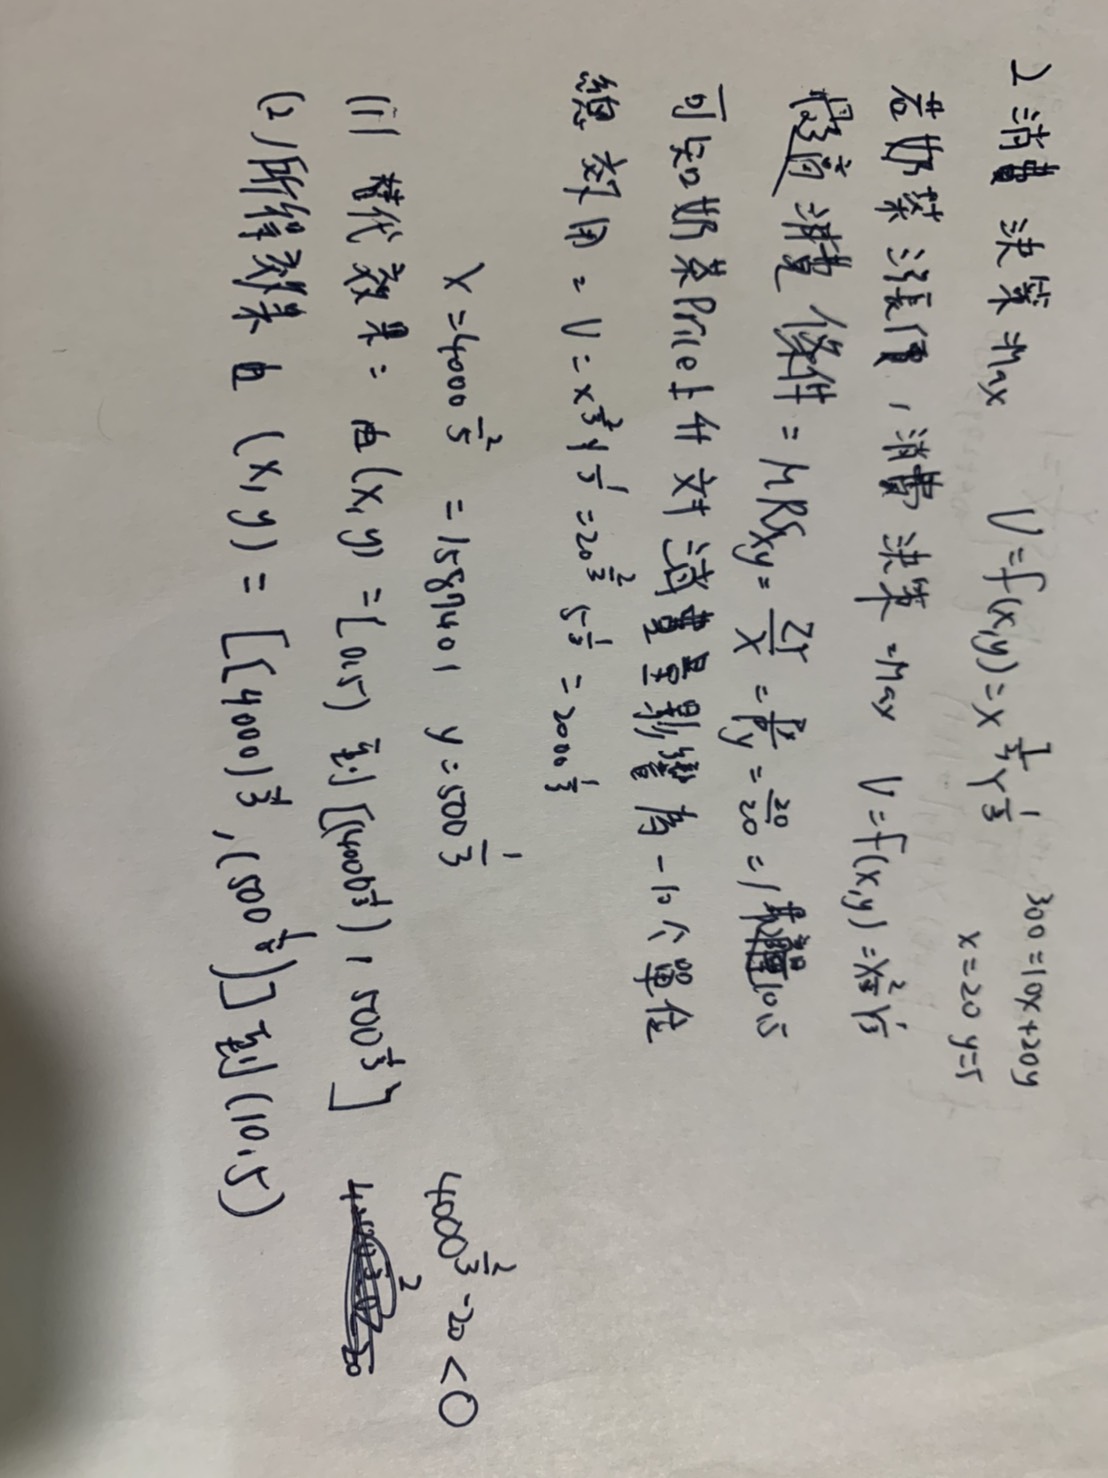 2 消費決策=Max U=f(x,y)=x⅔y⅓ 300=10x+20y
x=20 y=5
若奶茶漲價,消費決策=Max U=f(x,y)=x⅔y⅓
消費條件=MRSxy=2y/x=Px/Py=20/20=1 10,5
可知奶茶Price上升対消費量影響為-10个單位
總效用=U=x⅔y⅓=20⅔5⅓=2000⅓
X=4000 =15.87401 y=500⅓
4000⅔-20<0
(1) 替代效果: 由(x,y)= 到[(4000⅓),500⅓]
(2)所得效果 由(x,y)=[(4000)⅓,(500⅓)]到(10,5)